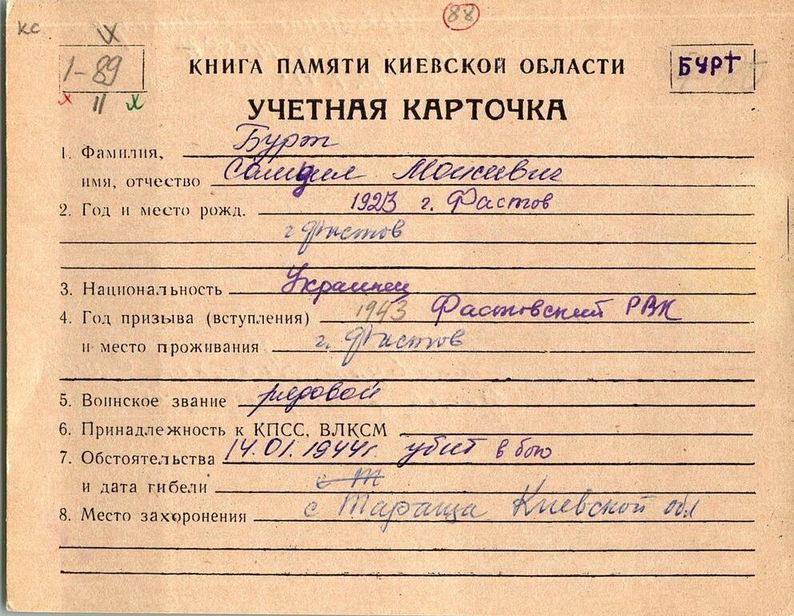 88
КС
1-89
11
КНИГА ПАМЯТИ КИЕВСКОЙ ОБЛАСТИ
БУРТ
УЧЕТНАЯ КАРТОЧКА
1. Фамилия, Бурт
имя, отчество Самуил Моисеевич
2. Год и место рожд. 1923 г. Фастов
г Фастов
3. Национальность Украинец
4. Год призыва (вступления) 1943 Фастовский РВК
и место проживания г. Фастов
5. Воинское звание рядовой
6. Принадлежность к КПСС, ВЛКСМ
7. Обстоятельства 14.01.1944г. убит в бою
и дата гибели с Т
8. Место захоронения с Тараща Киевской обл